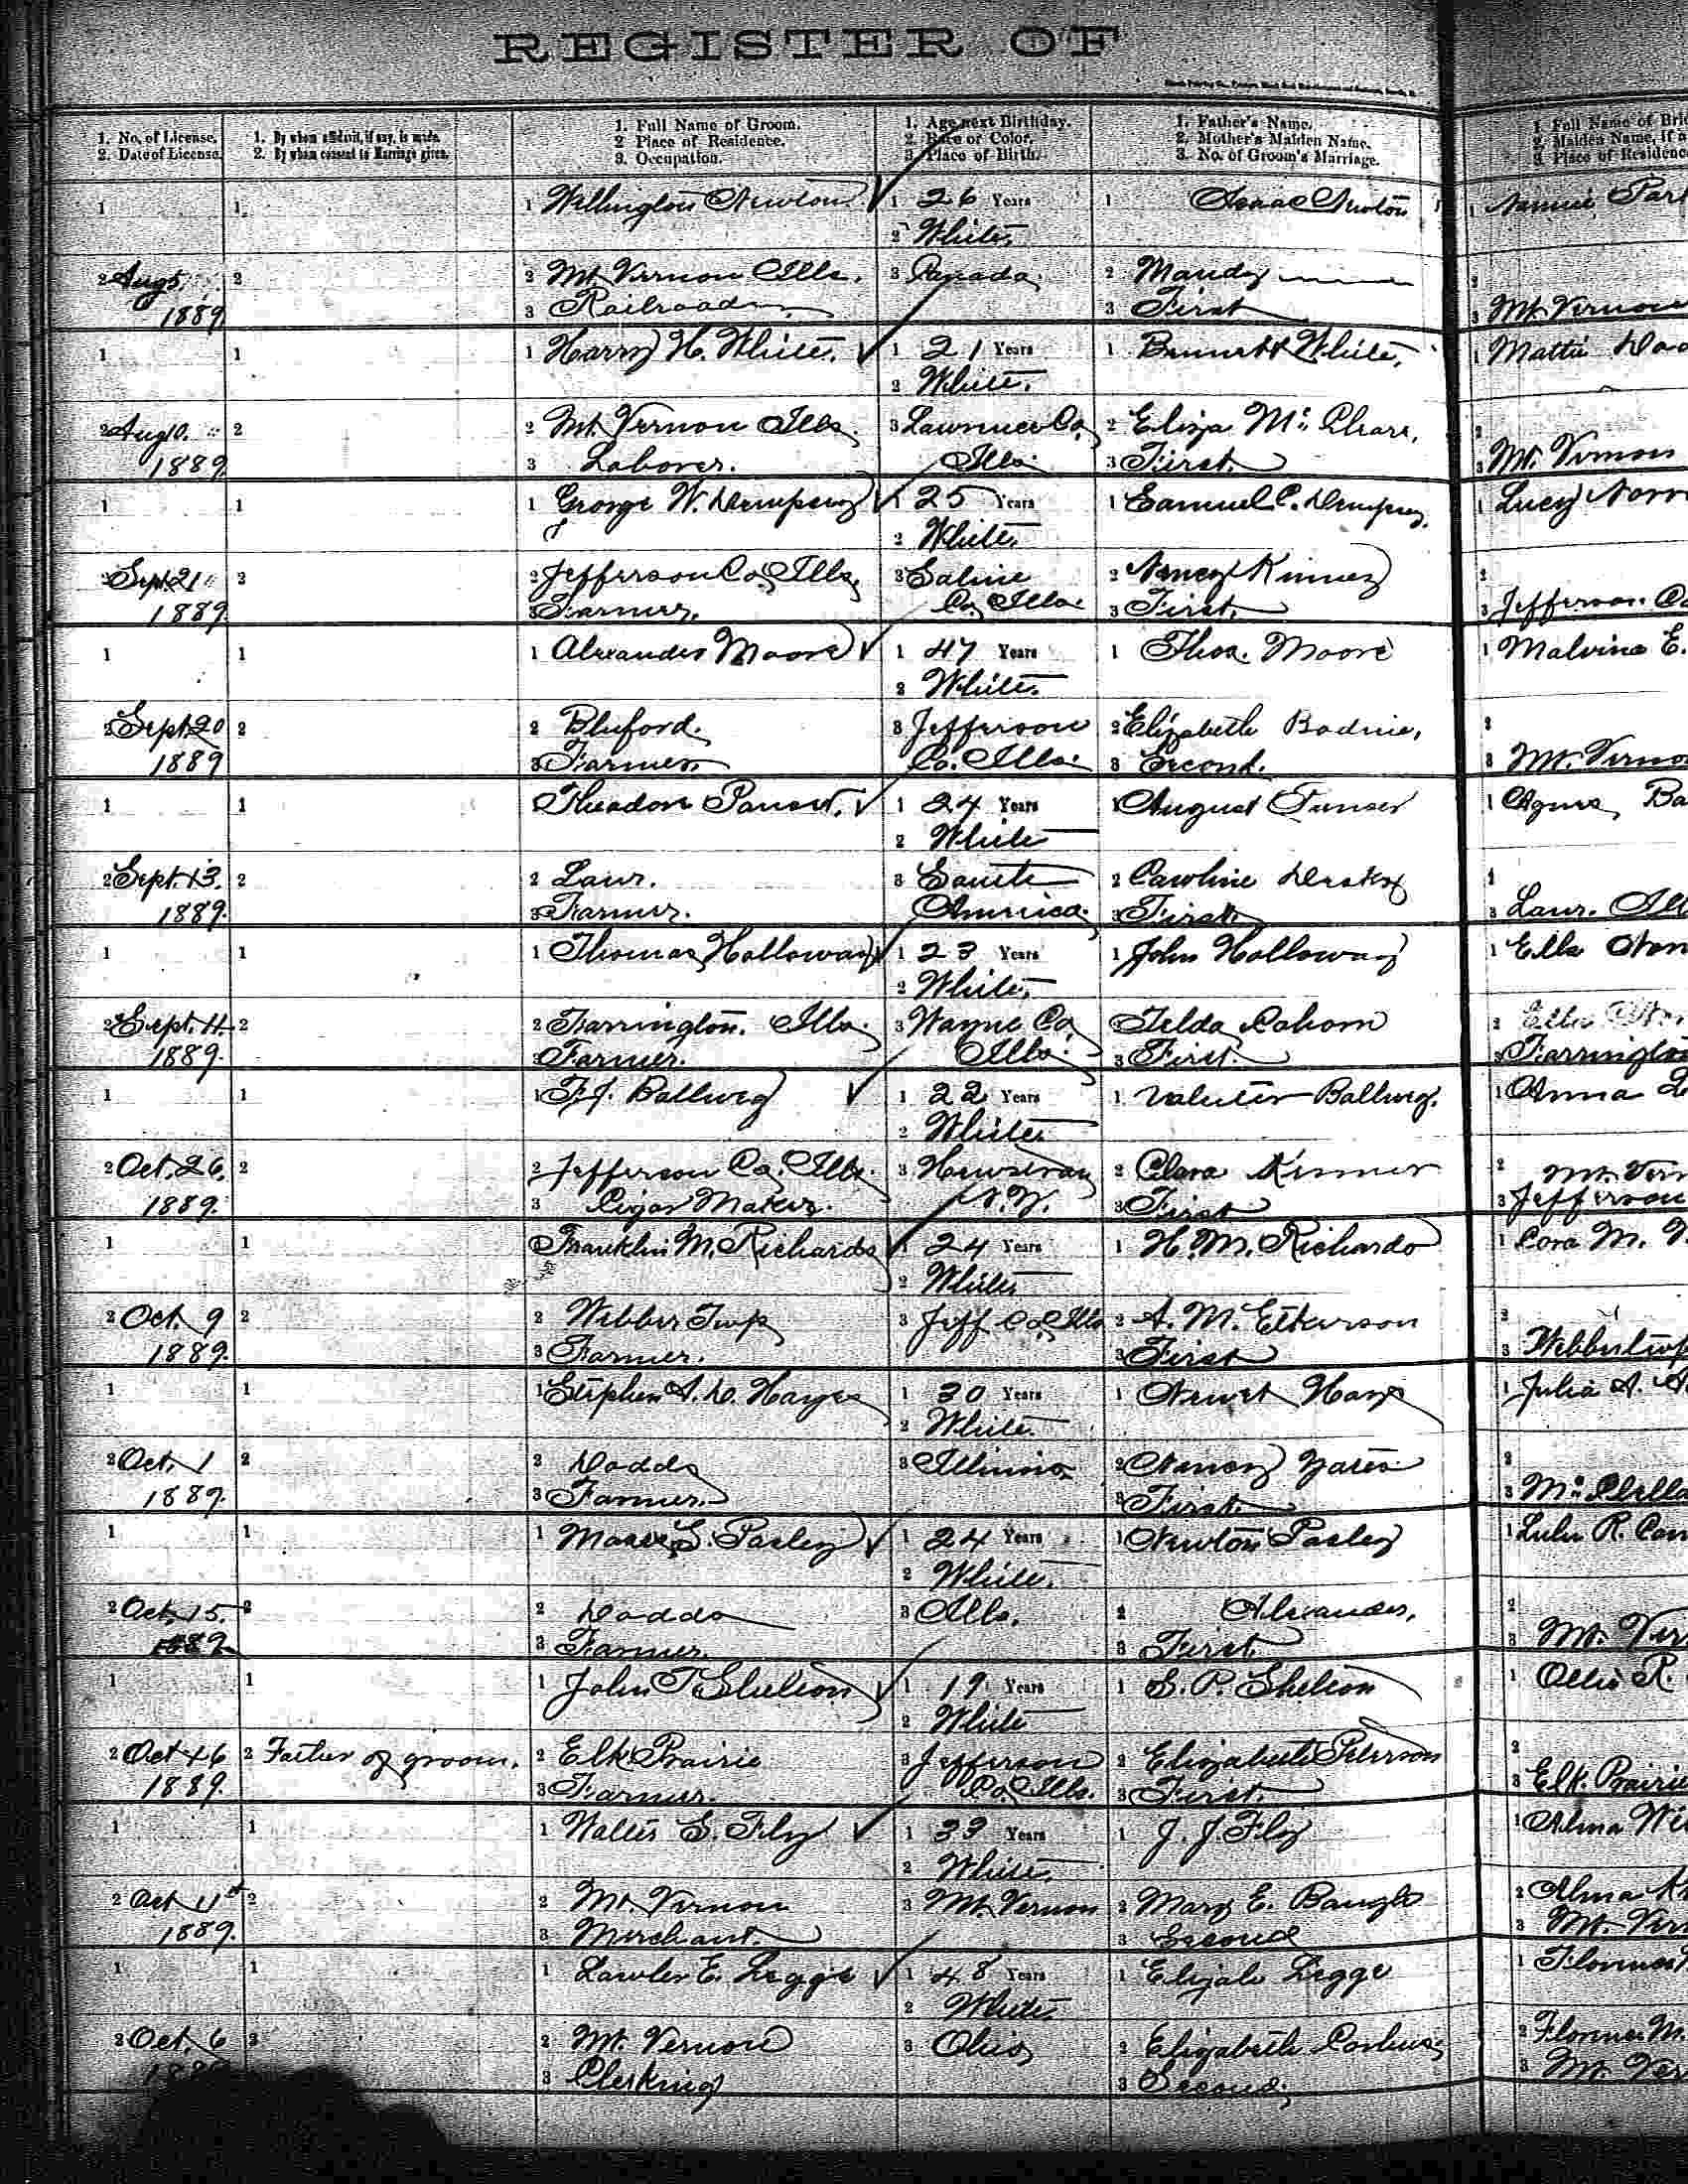 REGISTER OF
1. No. of License.
2. Date of License.
1. By whom affidavit, if any, is made.
2. By whom consent to Marriage given.
1. Full Name of Groom.
2 Place of Residence.
3. Occupation.
1. Age next Birthday.
2. Race or Color.
3. Place of Birth.
1. Father's Name.
2. Mother's Maiden Name.
3. No. of Groom's Marriage.
1. Full Name of Brid
2. Maiden Name, if a
3. Place of Residenc
1 1 1 Wellington Newton 1 26 Years 1 Isaac Newton 1 Nannie Park
2 White.
2 Aug 5 2 2 Mt. Vernon Ills. 3 Canada. 2 Mandy 2
1889 3 Railroad 3 First 3 Mt. Vernon
1 1 1 Harry H. White. 1 21 Years 1 Bennett White, 1 Mattie
2 White.
2 Aug 10. 2 2 Mt. Vernon Ills. 3 Lawrence Co, 2 Eliza Mc 2
1889 3 Laborer. Ills. 3 First. 3 Mt. Vernon
1 1 1 George W. Dempsey 1 25 Years 1 Samuel C. Dempsey. 1 Lucy Norr
2 White.
2 Sept. 21 2 2 Jefferson Co, Ills, 3 Saline 2 Nancy Kinney 2
1889 3 Farmer. Co, Ills. 3 First. 3 Jefferson Co
1 1 1 Alexander Moore 1 47 Years 1 Thos. Moore 1 Malvina E.
2 White.
2 Sept 20 2 2 Bluford. 3 Jefferson 2 Elizabeth Bodine, 2
1889 3 Farmer Co. Ills. 3 Second. 3 Mt. Verno
1 1 1 Theadore 1 24 Years 1 August 1 Agnes Ba
2 White
2 Sept. 13. 2 2 Laur. 3 South 2 Caroline 2
1889. 3 Farmer. America. 3 First 3 Laur. Ill
1 1 1 Thomas Holloway 1 23 Years 1 John Holloway 1 Ella
2 White.
2 Sept. 11. 2 2 Farrington. Ills. 3 Wayne Co, 2 Telda 2 Ella
1889. 3 Farmer. Ills. 3 First. 3 Farrington
1 1 1 F. J. Ballweg 1 22 Years 1 Ballweg. 1 Anna
2 White.
2 Oct. 26. 2 2 Jefferson Co, Ills. 3 2 Clara 2 Mt. Vern
1889. 3 Cigar Maker. N. Y. 3 First 3 Jefferson
1 1 1 Franklin M. Richards 1 24 Years 1 H. M. Richards 1 Cora M.
2 White
2 Oct. 9 2 2 Webber Twp 3 Jeff Co, Ills 2 A. M. 2
1889. 3 Farmer. 3 First 3 Webber twp
1 1 1 Stephen A. D. Hayes 1 30 Years 1 Hays 1 Julia A.
2 White.
2 Oct. 1 2 2 Dodds 3 Illinois 2 Nancy 2
1889. 3 Farmer. 3 First. 3 Mc Clella
1 1 1 S. Pasley 1 24 Years 1 Newton Pasley 1 Lulu R. Can
2 White.
2 Oct. 15. 2 2 Dodds 3 Ills. 2 Alexander, 2
1889. 3 Farmer. 3 First 3 Mt. Ver
1 1 1 John T. Shelton 1 19 Years 1 S. P. Shelton 1 Ollie R.
2 White
2 Oct 2 Father of groom. 2 Elk Prairie 3 Jefferson 2 Elizabeth Peterson 2
1889. 3 Farmer. Co, Ills. 3 First. 3 Elk. Prairie
1 1 1 Walter S. Fly 1 33 Years 1 J. J. Fly 1 Alma
2 White.
2 Oct 2 2 Mt. Vernon 3 Mt. Vernon 2 Mary E. Baugh 2 Alma
1889. 3 Merchant. 3 Second 3 Mt. Ver
1 1 1 Lawler E. Legge 1 48 Years 1 Elijah Legge 1
2 White.
2 Oct. 6 2 2 Mt. Vernon 3 Ohio, 2 Elizabeth 2 Florence M.
3 Clerking 3 Second. 3 Mt. Ver